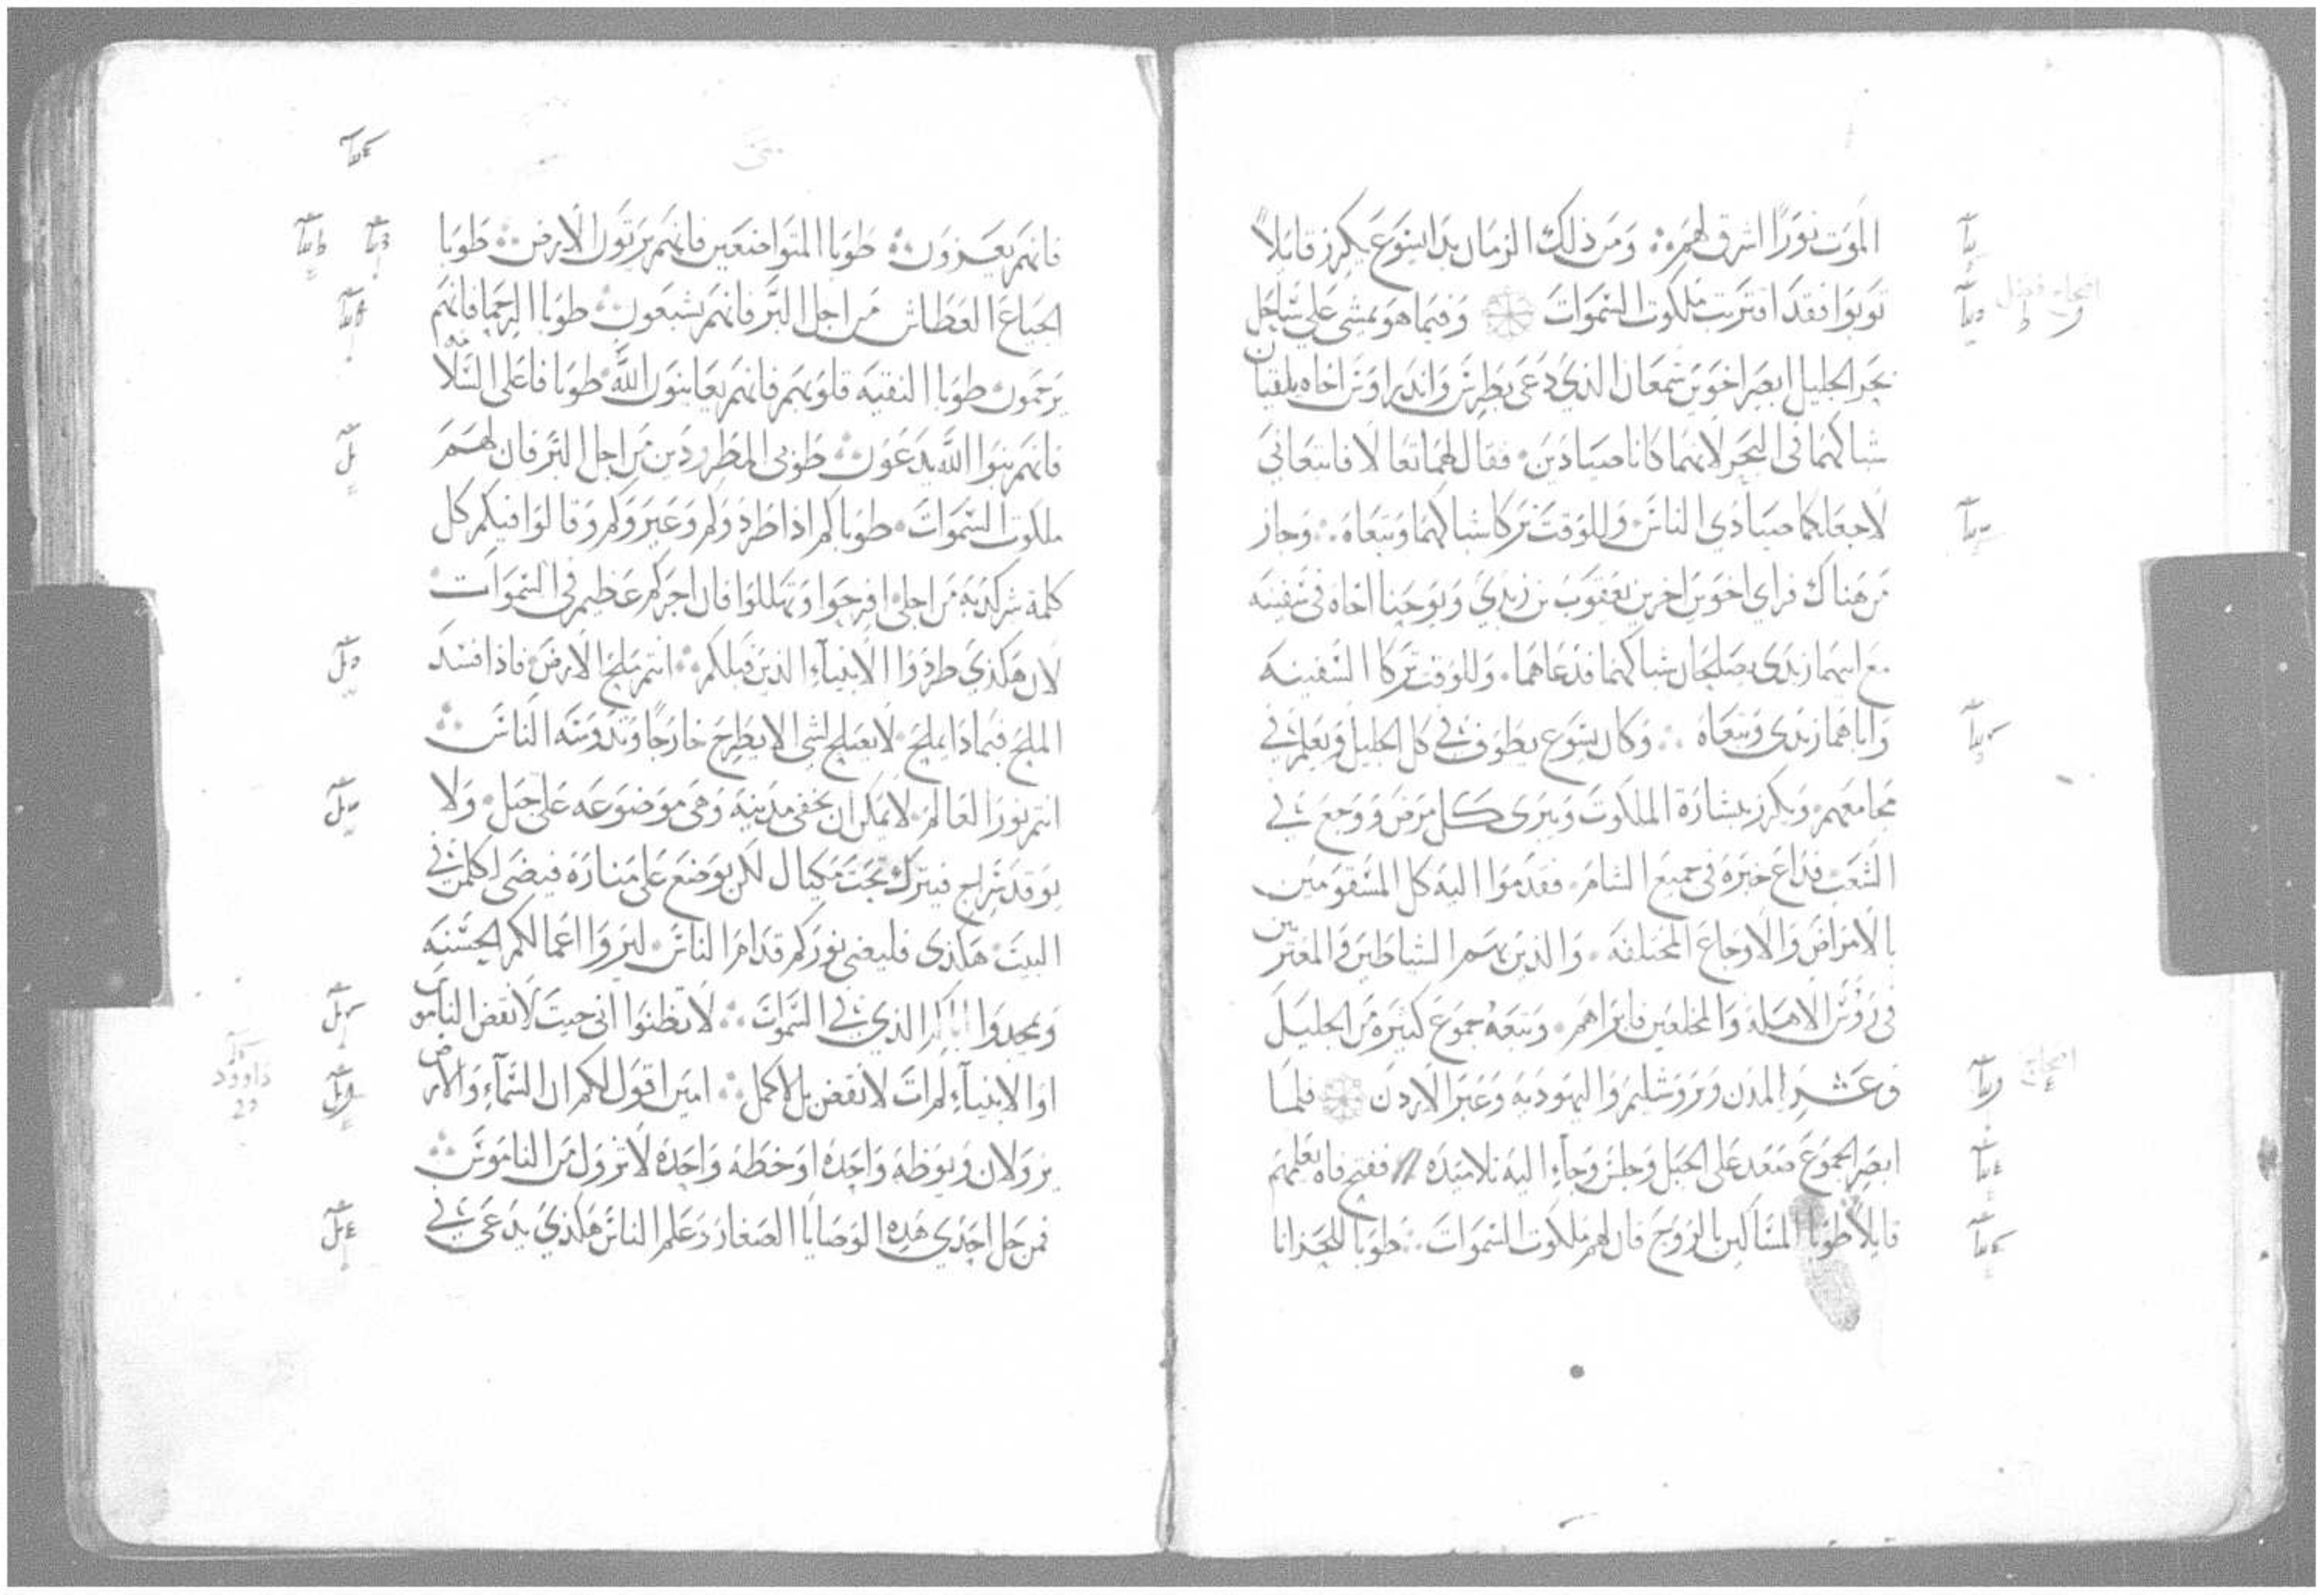 الموت نورًا اشرق لهم ومن ذلك الزمان بدا يسوع يكرز قايلاً
توبوا فقد اقتربت ملكوت السموات وفيما هو يمشي على ساحل
بحر الجليل ابصر اخوين سمعان الذي دعى بطرس واندراوس اخاه يلقيان
شباكهما في البحر لانهما كانا صيادين فقال لهما تعالا فاتبعاني
لاجعلكما صيادي الناس وللوقت تركا شباكهما وتبعاه وجاز
من هناك فراي اخوين اخرين يعقوب بن زبدي ويوحنا اخاه في سفينه
مع ابيهما زبدى يصلحان شباكهما فدعاهما وللوقت تركا السفينه
واباهما زبدى وتبعاه وكان يسوع يطوف في كل الجليل ويعلم في
مجامعهم ويكرز ببشارة الملكوت ويبرى كل مرض ووجع في
الشعب فذاع خبره في جميع الشام فقدموا اليه كل المسقومين
بالامراض والاوجاع المختلفه والذين بهم الشياطين والمعترين
في رؤس الاهلة والمخلعين فابراهم وتبعه جموع كثيره من الجليل
وعشر المدن ويروشليم واليهوديه وعبر الاردن فلما
ابصر الجموع صعد على الجبل وجلس وجاء اليه تلاميذه ففتح فاه يعلمهم
قايلاً طوبا المساكين بالروح فان لهم ملكوت السموات طوبا للحزانا
متى
فانهم يعزون طوبا المتواضعين فانهم يرثون الارض طوبا
الجياع العطاش من اجل البر فانهم يشبعون طوبا الرحما فانهم
يرحمون طوبا النقيه قلوبهم فانهم يعاينون الله طوبا فاعلى السلامه
فانهم بنوا الله يدعون طوبى المطرودين من اجل البر فان لهم
ملكوت السموات طوبا كم اذا طردوكم وعيروكم وقالوا فيكم كل
كلمة شر كذبه من اجلي افرحوا وتهللوا فان اجركم عظيم في السموات
لان هكذي طردوا الانبياء الذين قبلكم انتم ملح الارض فاذا فسد
الملح فبماذا يملح لا يصلح لشي الا يطرح خارجًا وتدوسه الناس
انتم نور العالم لا يمكن ان تخفى مدينه وهى موضوعه على جبل ولا
يوقد سراج فيترك تحت مكيال لكن يوضع على منارة فيضى لكل من في
البيت هكذى فليضى نوركم قدام الناس ليروا اعمالكم الحسنه
ويمجدوا اباكم الذي في السموات لا تظنوا انى جيت لانقض الناموس
او الانبياء لم ات لانقض بل لاكمل امين اقول لكم ان السماء والارض
يزولان ويوطه واحده او خطه واحده لا تزول من الناموس
فمن حل احدى هذه الوصايا الصغار وعلم الناس هكذي يدعى في
داوود